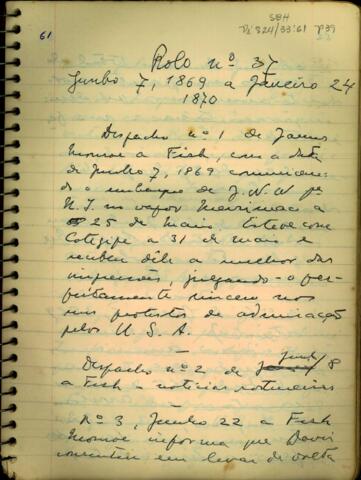 61
584
Pi 324/33:61 p39
Rolo nº 37
Junho 7, 1869 a Janeiro 24
1870
Despacho nº 1 de James
Monroe a Fish, com a data
de Junho 7, 1869 comunican
do o embarque de J. W. W pª
N. Y. no vapor Merrimac a
25 de Maio. Esteve com
Cotegipe a 31 de maio e
recebeu dêle a melhor das
impressões, julgando-o per-
feitamente sincero nos
seus protestos de admiração
pelos U. S. A.
—
Despacho nº 2 de Junho 8
a Fish e noticias rotineiras
—
Nº 3, Junho 22 a Fish
Monroe informa que Davis
consentiu em levar de volta